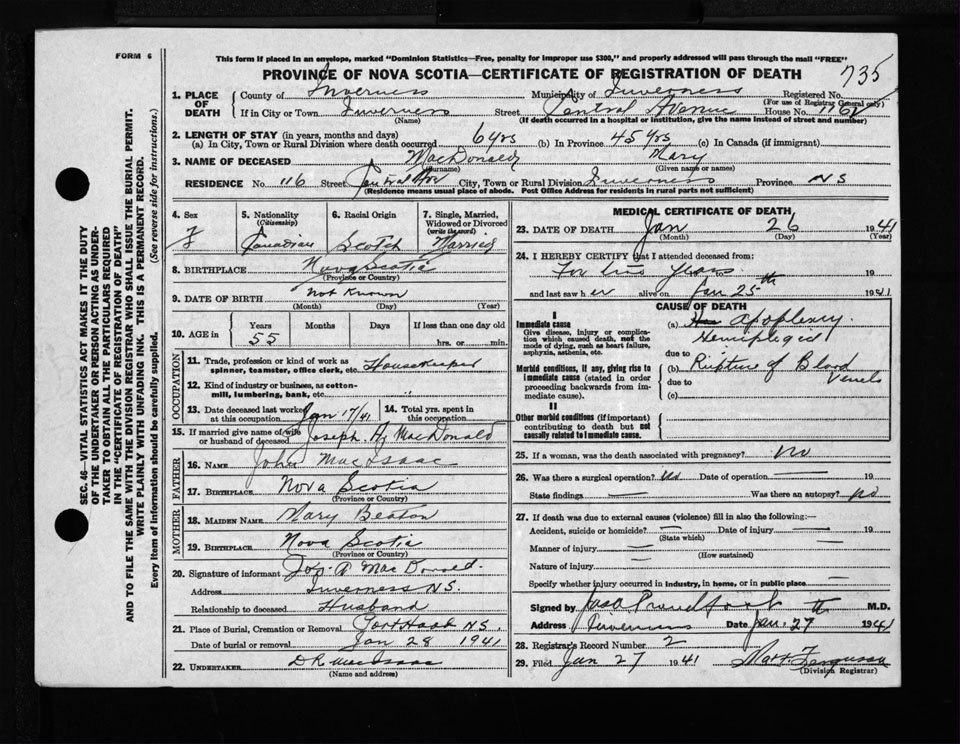 FORM 6
This form if placed in an envelope, marked "Dominion Statistics—Free, penalty for improper use $300," and properly addressed will pass through the mail "FREE"
PROVINCE OF NOVA SCOTIA—CERTIFICATE OF REGISTRATION OF DEATH
735
1. PLACE OF DEATH
County of Inverness Municipality of Inverness Registered No.
(For use of Registrar General only)
If in City or Town Inverness Street Central Avenue House No.
(Name) (If death occurred in a hospital or institution, give the name instead of street and number)
2. LENGTH OF STAY (in years, months and days)
(a) In City, Town or Rural Division where death occurred 6 yrs (b) In Province 45 yrs (c) In Canada (if immigrant)
3. NAME OF DECEASED MacDonald Mary
(Surname) (Given name or names)
RESIDENCE No. 116 Street Central Ave City, Town or Rural Division Inverness Province NS
(Residence means usual place of abode. Post Office Address for residents in rural parts not sufficient)
4. Sex
F
5. Nationality
(Citizenship)
Canadian
6. Racial Origin
Scotch
7. Single, Married, Widowed or Divorced
(write the word)
Married
8. BIRTHPLACE Nova Scotia
(Province or Country)
9. DATE OF BIRTH Not Known
(Month) (Day) (Year)
10. AGE in
Years Months Days If less than one day old
55 hrs. or min.
OCCUPATION
11. Trade, profession or kind of work as spinner, teamster, office clerk, etc. Housekeeper
12. Kind of industry or business, as cotton-mill, lumbering, bank, etc.
13. Date deceased last worked at this occupation Jan 17/41
14. Total yrs. spent in this occupation
15. If married give name of wife or husband of deceased Joseph A MacDonald
FATHER
16. Name John MacIsaac
17. Birthplace Nova Scotia
(Province or Country)
MOTHER
18. Maiden Name Mary Beaton
19. Birthplace Nova Scotia
(Province or Country)
20. Signature of informant Jos. A MacDonald
Address Inverness N.S.
Relationship to deceased Husband
21. Place of Burial, Cremation or Removal Port Hood N.S.
Date of burial or removal Jan 28 1941
22. Undertaker D R MacIsaac
(Name and address)
MEDICAL CERTIFICATE OF DEATH
23. DATE OF DEATH Jan 26 1941
(Month) (Day) (Year)
24. I HEREBY CERTIFY that I attended deceased from:
For Years to 19
and last saw her alive on Jan 25th 1941
CAUSE OF DEATH
I
Immediate cause
Give disease, injury or complication which caused death, not the mode of dying, such as heart failure, asphyxia, asthenia, etc.
(a) Apoplexy
Hemiplegia
due to
Morbid conditions, if any, giving rise to immediate cause (stated in order proceeding backwards from immediate cause).
(b) Rupture of Blood Vessels
due to
(c)
II
Other morbid conditions (if important) contributing to death but not causally related to immediate cause.
25. If a woman, was the death associated with pregnancy? No
26. Was there a surgical operation? No Date of operation 19
State findings Was there an autopsy? No
27. If death was due to external causes (violence) fill in also the following:—
Accident, suicide or homicide? Date of injury 19
(State which)
Manner of injury
(How sustained)
Nature of injury
Specify whether injury occurred in industry, in home, or in public place
Signed by Proudfoot M.D.
Address Inverness Date Jan. 27 1941
28. Registrar's Record Number 2
29. Filed Jan 27 1941 Ferguson
(Division Registrar)
SEC. 46—VITAL STATISTICS ACT MAKES IT THE DUTY
OF THE UNDERTAKER OR PERSON ACTING AS UNDER-
TAKER TO OBTAIN ALL THE PARTICULARS REQUIRED
IN THE "CERTIFICATE OF REGISTRATION OF DEATH"
AND TO FILE THE SAME WITH THE DIVISION REGISTRAR WHO SHALL ISSUE THE BURIAL PERMIT.
WRITE PLAINLY WITH UNFADING INK. THIS IS A PERMANENT RECORD.
Every item of information should be carefully supplied. (See reverse side for instructions.)